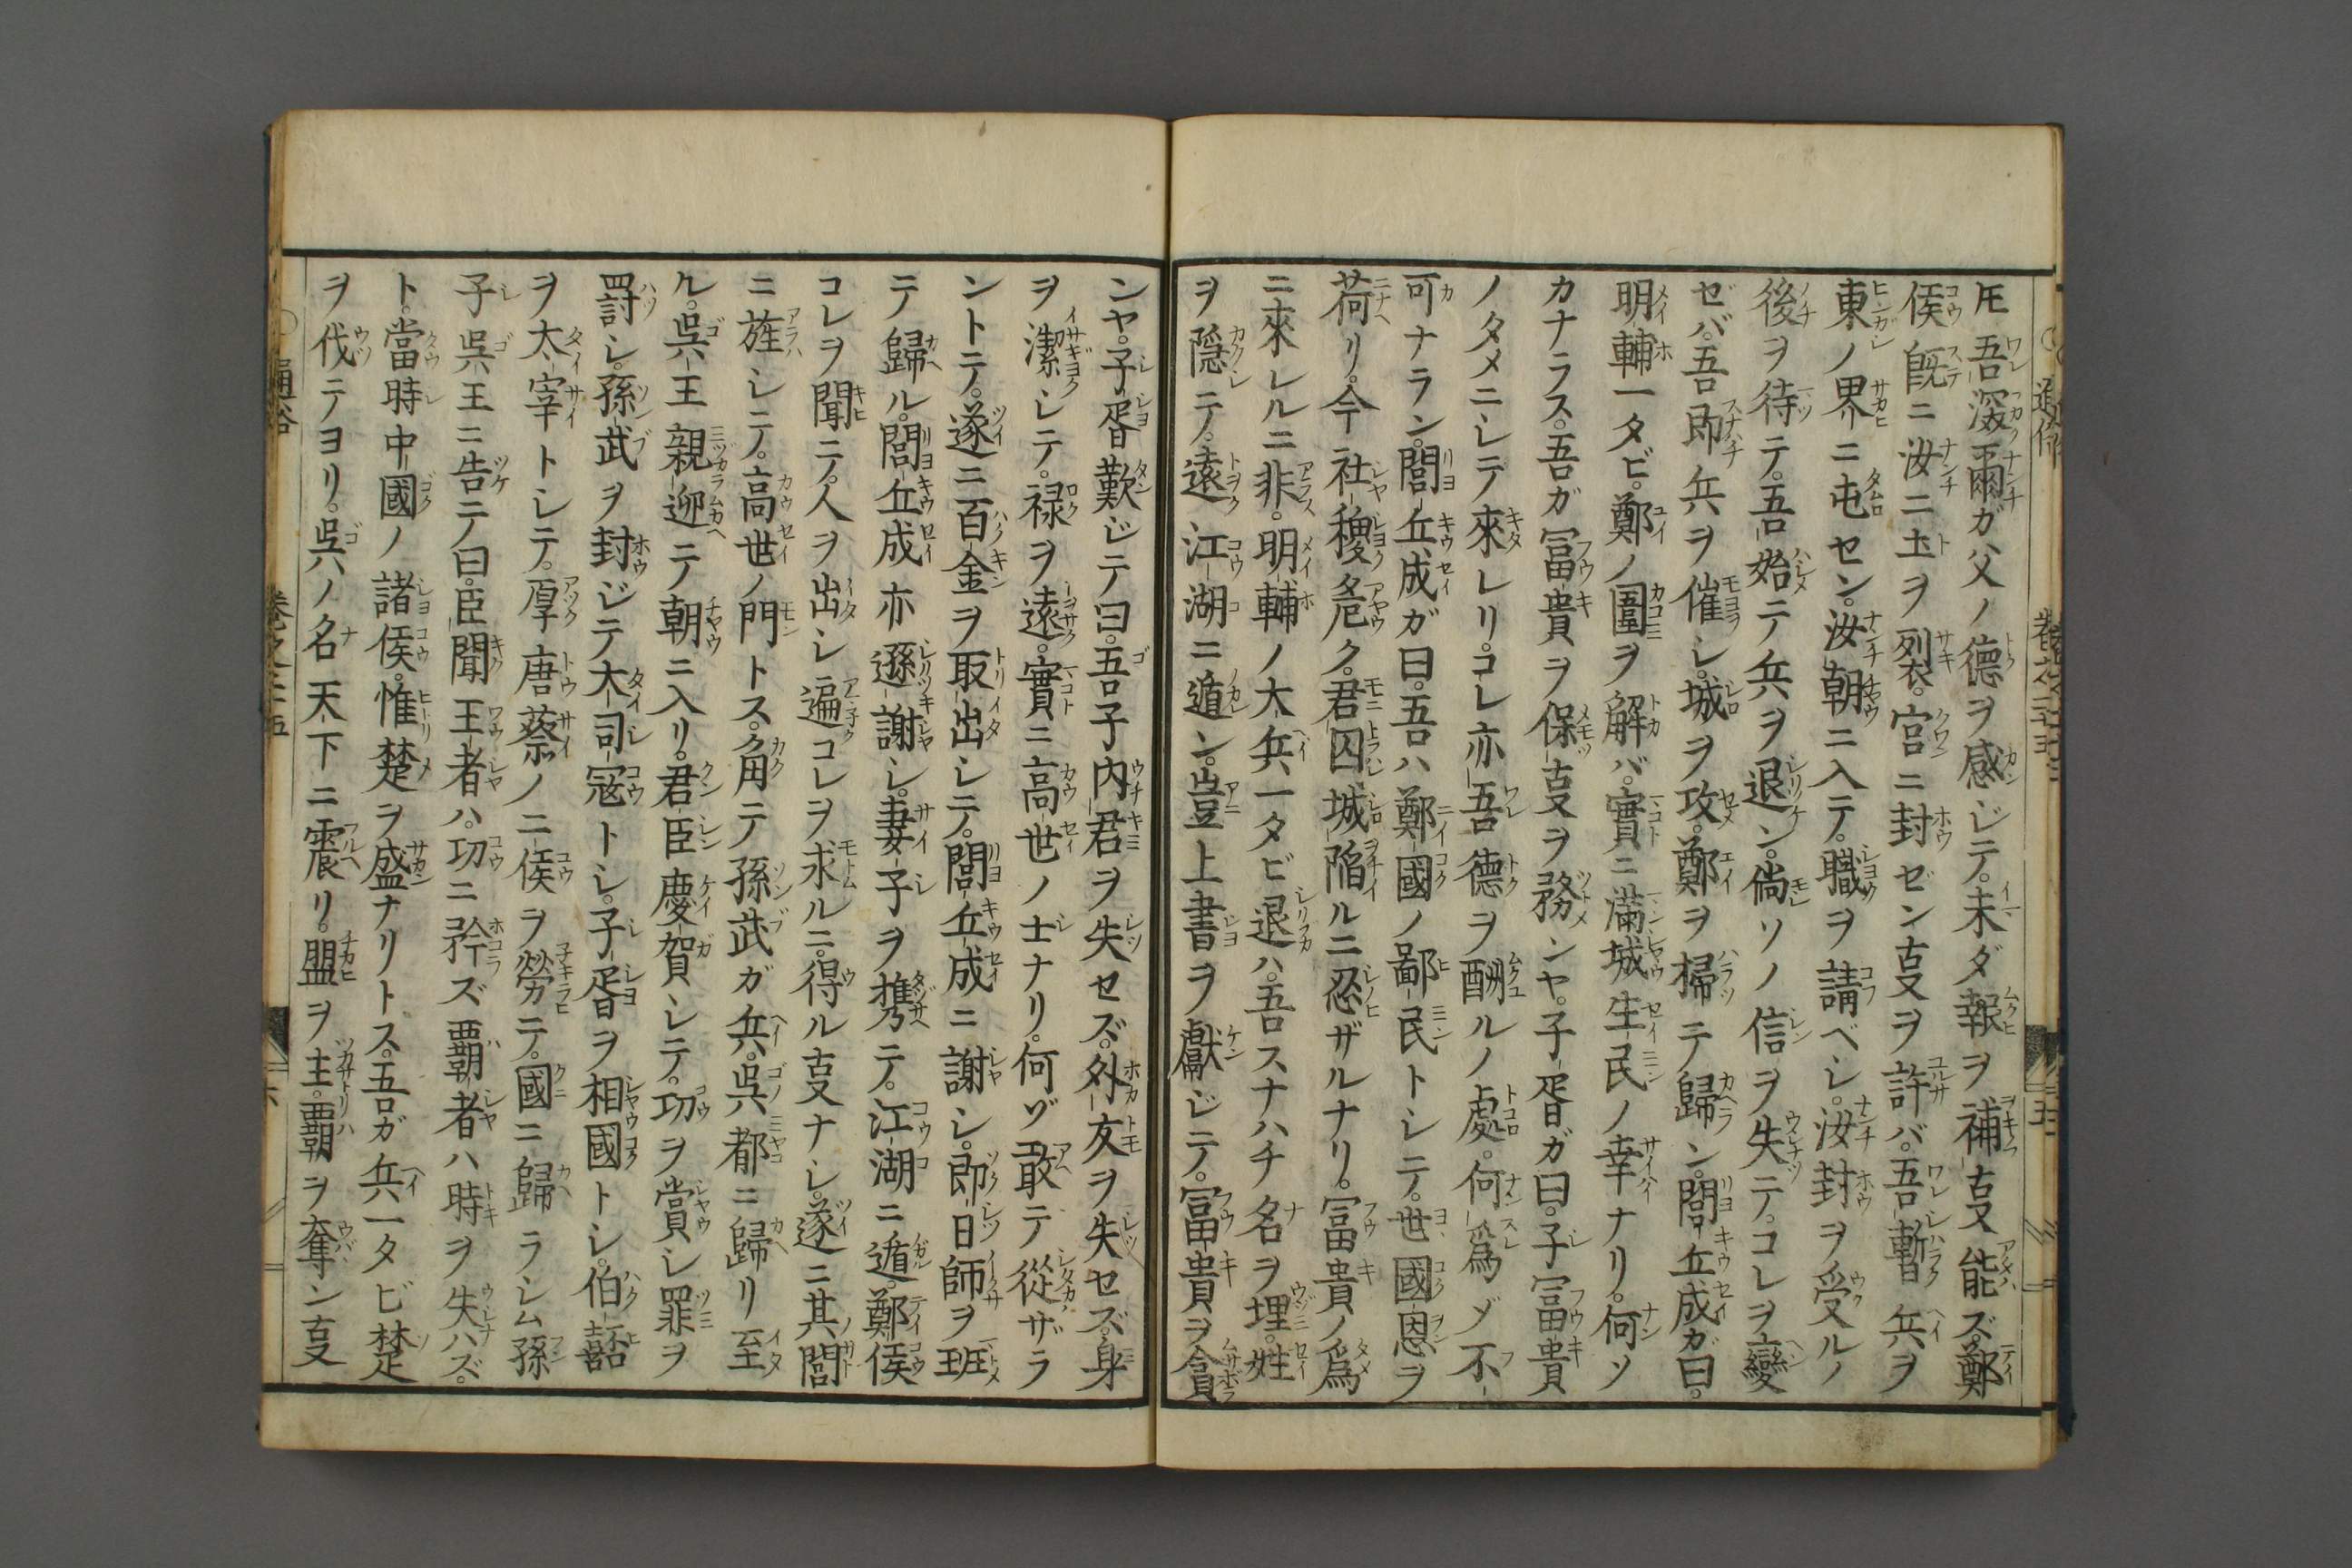 𪜈吾深爾ガ父ノ徳ヲ感ジテ。未ダ報ヲ補㕝能ズ。鄭
侯既ニ汝ニ土ヲ裂。官ニ封ゼン㕝ヲ許バ。吾暫兵ヲ
東ノ界ニ屯セン。汝朝ニ入テ。職ヲ請ベシ。汝封ヲ受ルノ
後ヲ待テ。吾始テ兵ヲ退ン。倘ソノ信ヲ失テ。コレヲ變
ゼバ。吾即兵ヲ催シ。城ヲ攻。鄭ヲ掃テ歸ン。閭丘成ガ曰。
明輔一タビ。鄭ノ圍ヲ解バ。實ニ滿城生民ノ幸ナリ。何ソ
カナラス。吾ガ冨貴ヲ保㕝ヲ務ンヤ。子胥ガ曰。子冨貴
ノタメニシテ來レリ。コレ亦吾徳ヲ酬ルノ處。何爲ゾ不
可ナラン。閭丘成ガ曰。吾ハ鄭國ノ鄙民トシテ。世國恩ヲ
荷リ。今社稷危ク。君囚城陷ルニ忍ザルナリ。冨貴ノ爲
ニ來レルニ非。明輔ノ大兵一タビ退ハ。吾スナハチ名ヲ埋。姓
ヲ隠テ。遠江湖ニ遁ン。豈上書ヲ獻ジテ。冨貴ヲ貪
ンヤ。子胥歎ジテ曰。吾子内君ヲ失セズ。外友ヲ失セズ。身
ヲ潔シテ。禄ヲ遠。實ニ高世ノ士ナリ。何ゾ敢テ從ザラ
ントテ。遂ニ百金ヲ取出シテ。閭丘成ニ謝シ。即日師ヲ班
テ歸ル。閭丘成亦遜謝シ。妻子ヲ携テ。江湖ニ遁。鄭侯
コレヲ聞テ。人ヲ出シ遍コレヲ求ルニ。得ル㕝ナシ。遂ニ其閭
ニ旌シテ。高世ノ門トス。角テ孫武ガ兵。呉都ニ歸リ至
ル。呉王親迎テ朝ニ入リ。君臣慶賀シテ。功ヲ賞シ罪ヲ
罸シ。孫武ヲ封ジテ大司冦トシ。子胥ヲ相國トシ。伯嚭
ヲ太宰トシテ。厚唐蔡ノ二侯ヲ勞テ。國ニ歸ラシム孫
子呉王ニ告テノ曰。臣聞王者ハ。功ニ矜ズ覇者ハ時ヲ失ハズ。
ト。當時中國ノ諸侯。惟楚ヲ盛ナリトス。吾ガ兵一タビ楚
ヲ伐テヨリ。呉ノ名天下ニ震リ。盟ヲ主。覇ヲ奪ン㕝
通俗 卷之十五 六